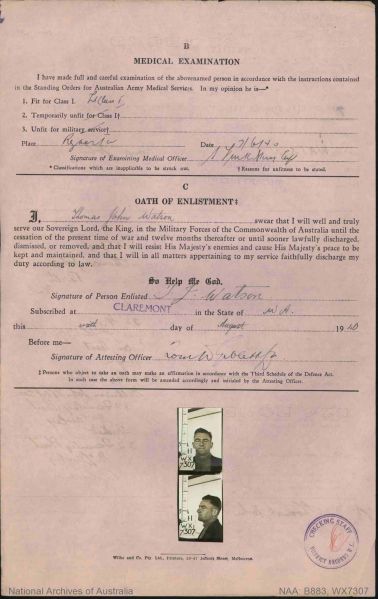 B
MEDICAL EXAMINATION
I have made full and careful examination of the abovenamed person in accordance with the instructions contained
in the Standing Orders for Australian Army Medical Services. In my opinion he is—*
1. Fit for Class I.
2. Temporarily unfit for Class I†
3. Unfit for military service†
Place Date 7/6/40
Signature of Examining Medical Officer
* Classifications which are inapplicable to be struck out. † Reasons for unfitness to be stated.
C
OATH OF ENLISTMENT‡
I, Thomas John Watson swear that I will well and truly
serve our Sovereign Lord, the King, in the Military Forces of the Commonwealth of Australia until the
cessation of the present time of war and twelve months thereafter or until sooner lawfully discharged,
dismissed, or removed, and that I will resist His Majesty's enemies and cause His Majesty's peace to be
kept and maintained, and that I will in all matters appertaining to my service faithfully discharge my
duty according to law.
So Help Me God.
Signature of Person Enlisted T J Watson
Subscribed at CLAREMONT in the State of W.A.
this day of August 1940
Before me—
Signature of Attesting Officer
‡ Persons who object to take an oath may make an affirmation in accordance with the Third Schedule of the Defence Act.
In such case the above form will be amended accordingly and initialed by the Attesting Officer.
H
WX
7307
H
WX
7307
CHECKING STAFF
Wilke and Co. Pty. Ltd., Printers, Jeffcott Street, Melbourne.
National Archives of Australia
NAA: B883, WX7307